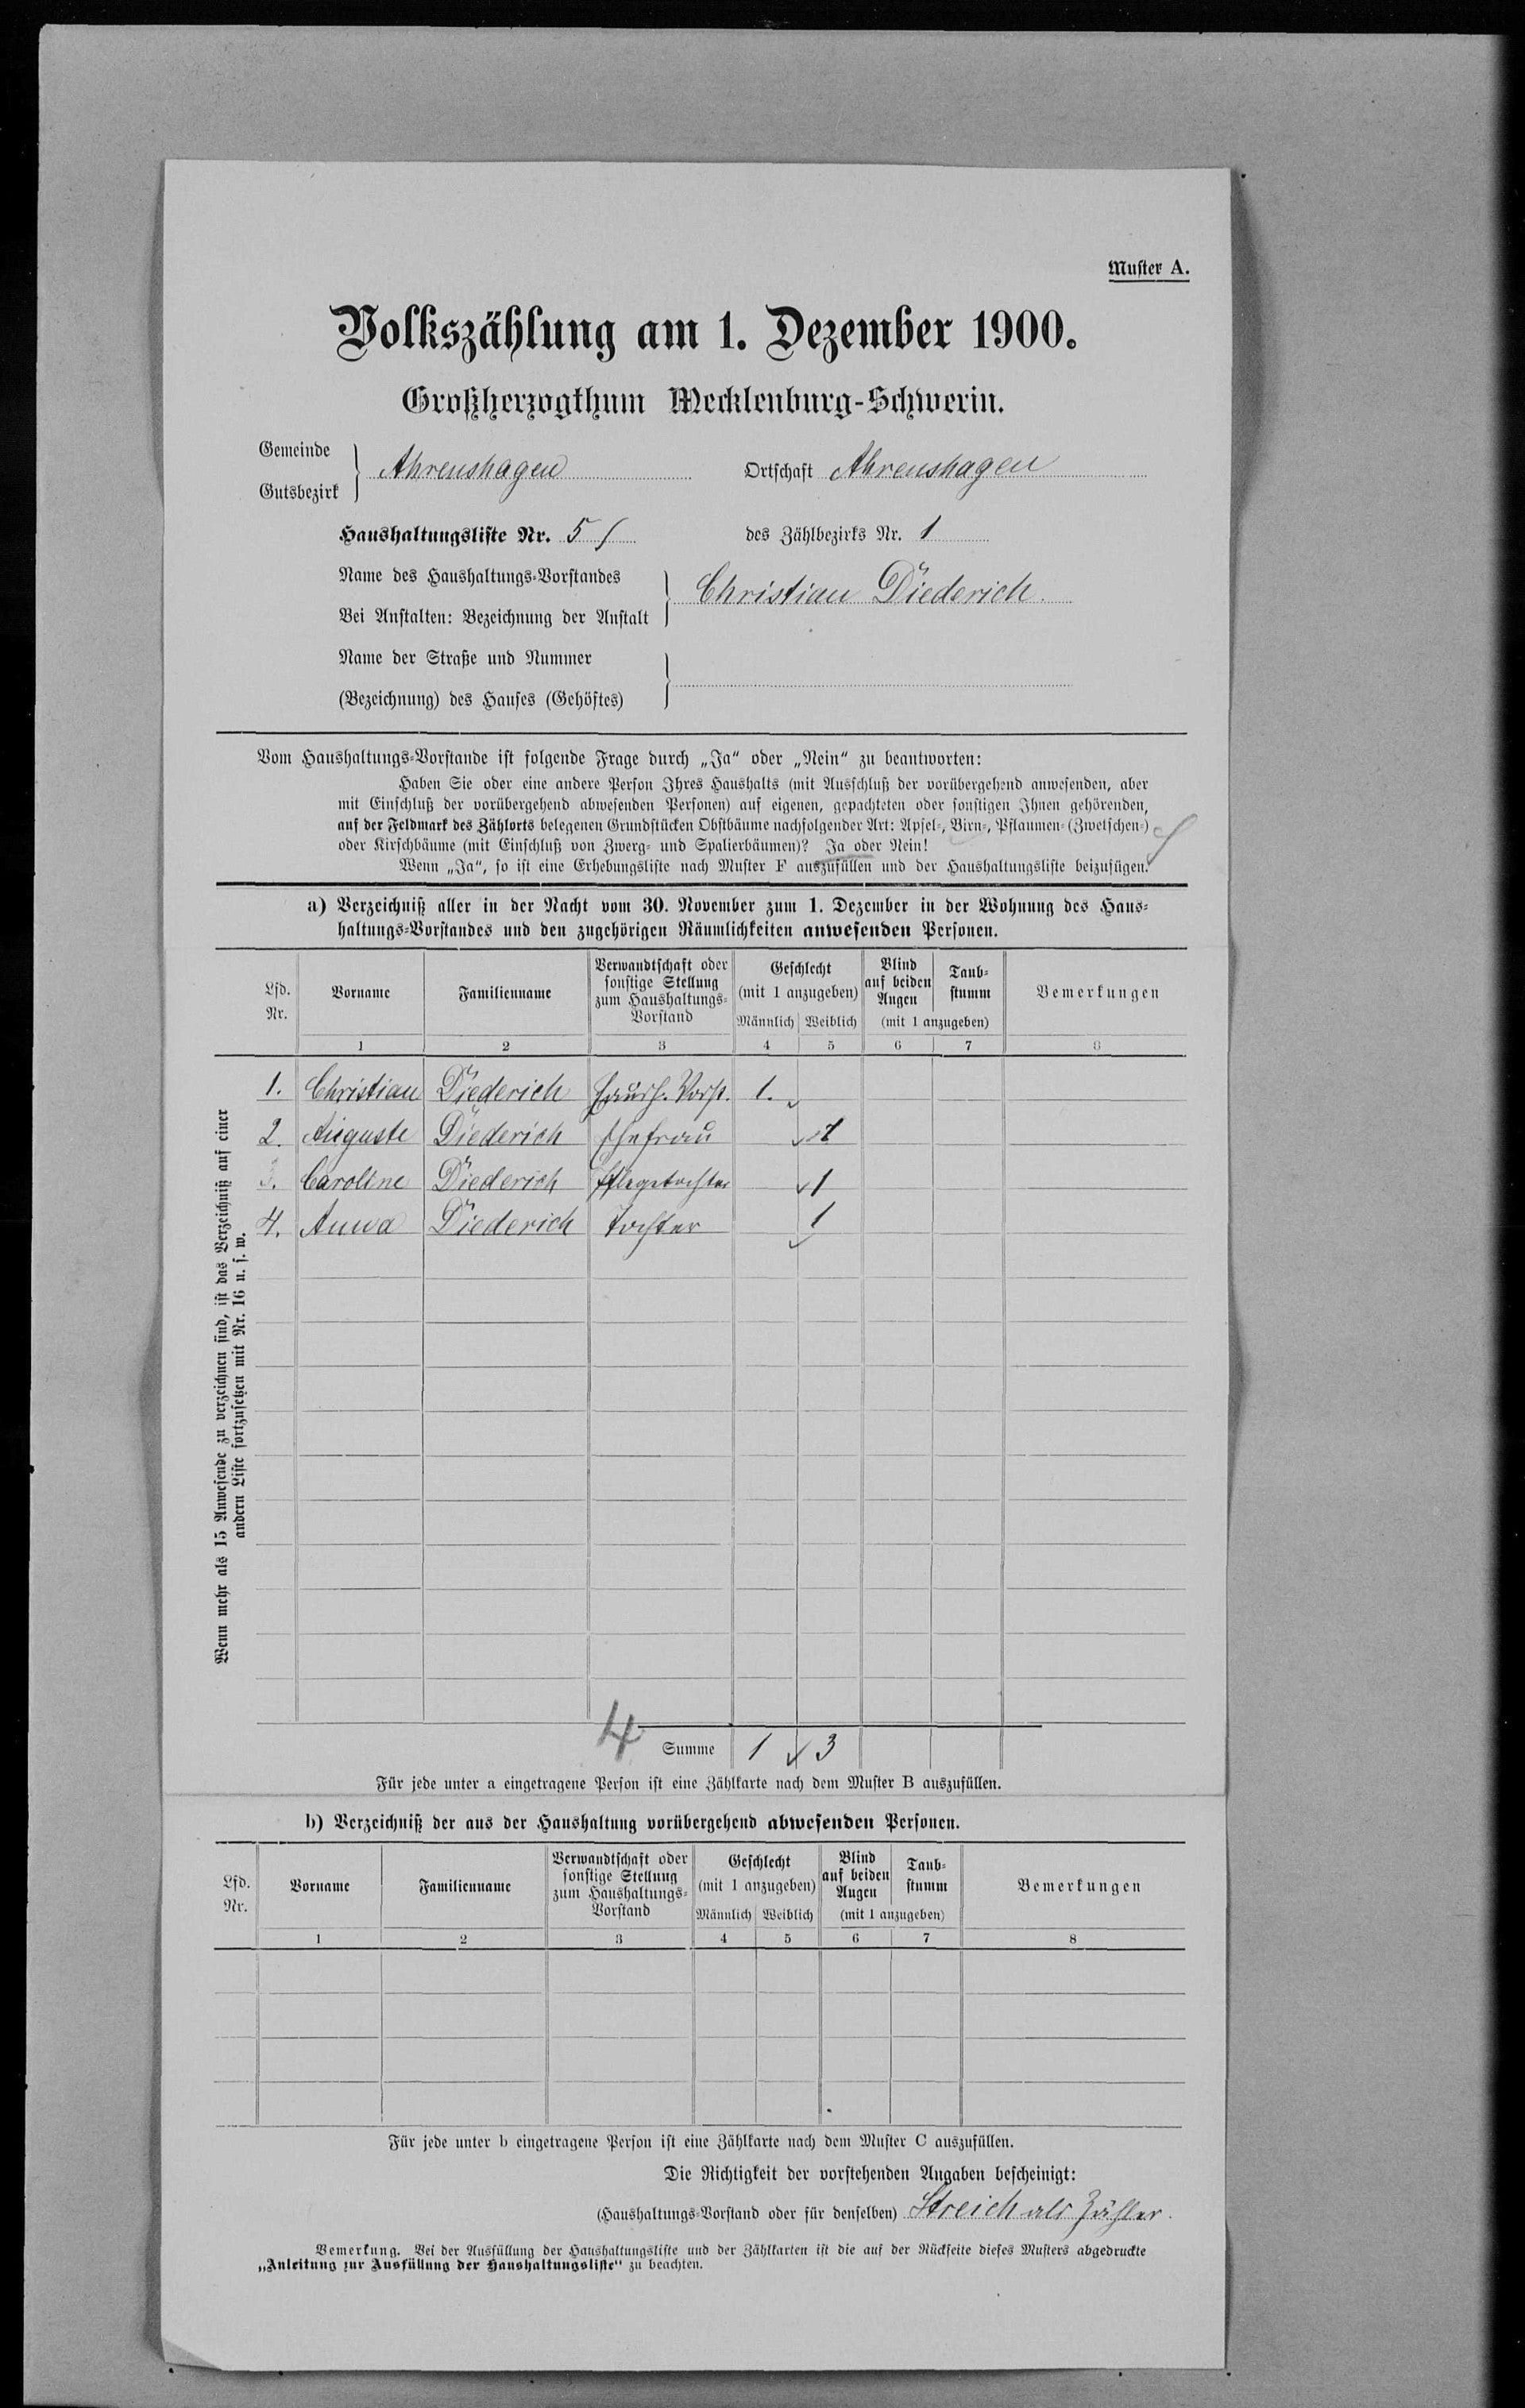 Muster A.
Volkszählung am 1. Dezember 1900.
Großherzogthum Mecklenburg-Schwerin.
Gemeinde
Gutsbezirk
Ahrenshagen
Ortschaft Ahrenshagen
Haushaltungsliste Nr. 5
des Zählbezirks Nr. 1
Name des Haushaltungs-Vorstandes
Bei Anstalten: Bezeichnung der Anstalt
Christian Diederich.
Name der Straße und Nummer
(Bezeichnung) des Hauses (Gehöftes)
Vom Haushaltungs-Vorstande ist folgende Frage durch „Ja“ oder „Nein“ zu beantworten:
Haben Sie oder eine andere Person Ihres Haushalts (mit Ausschluß der vorübergehend anwesenden, aber
mit Einschluß der vorübergehend abwesenden Personen) auf eigenen, gepachteten oder sonstigen Ihnen gehörenden,
auf der Feldmark des Zählorts belegenen Grundstücken Obstbäume nachfolgender Art: Apfel-, Birn-, Pflaumen- (Zwetschen-)
oder Kirschbäume (mit Einschluß von Zwerg- und Spalierbäumen)? Ja oder Nein!
Wenn „Ja“, so ist eine Erhebungsliste nach Muster F auszufüllen und der Haushaltungsliste beizufügen.
a) Verzeichniß aller in der Nacht vom 30. November zum 1. Dezember in der Wohnung des Haus-
haltungs-Vorstandes und den zugehörigen Räumlichkeiten anwesenden Personen.
Lfd. Nr. Vorname Familienname Verwandtschaft oder sonstige Stellung zum Haushaltungs-Vorstand Geschlecht (mit 1 anzugeben) Männlich Weiblich Blind auf beiden Augen Taub-stumm (mit 1 anzugeben) Bemerkungen
1 2 3 4 5 6 7 8
1. Christian Diederich Haush. Vorst. 1.
2. Auguste Diederich Ehefrau 1
3. Caroline Diederich Pflegetochter 1
4. Anna Diederich Tochter 1
Wenn mehr als 15 Anwesende zu verzeichnen sind, ist das Verzeichniß auf einer
andern Liste fortzusetzen mit Nr. 16 u. s. w.
4 Summe 1 3
Für jede unter a eingetragene Person ist eine Zählkarte nach dem Muster B auszufüllen.
b) Verzeichniß der aus der Haushaltung vorübergehend abwesenden Personen.
Lfd. Nr. Vorname Familienname Verwandtschaft oder sonstige Stellung zum Haushaltungs-Vorstand Geschlecht (mit 1 anzugeben) Männlich Weiblich Blind auf beiden Augen Taub-stumm (mit 1 anzugeben) Bemerkungen
1 2 3 4 5 6 7 8
Für jede unter b eingetragene Person ist eine Zählkarte nach dem Muster C auszufüllen.
Die Richtigkeit der vorstehenden Angaben bescheinigt:
(Haushaltungs-Vorstand oder für denselben) Streich als Zähler.
Bemerkung. Bei der Ausfüllung der Haushaltungsliste und der Zählkarten ist die auf der Rückseite dieses Musters abgedruckte
„Anleitung zur Ausfüllung der Haushaltungsliste“ zu beachten.